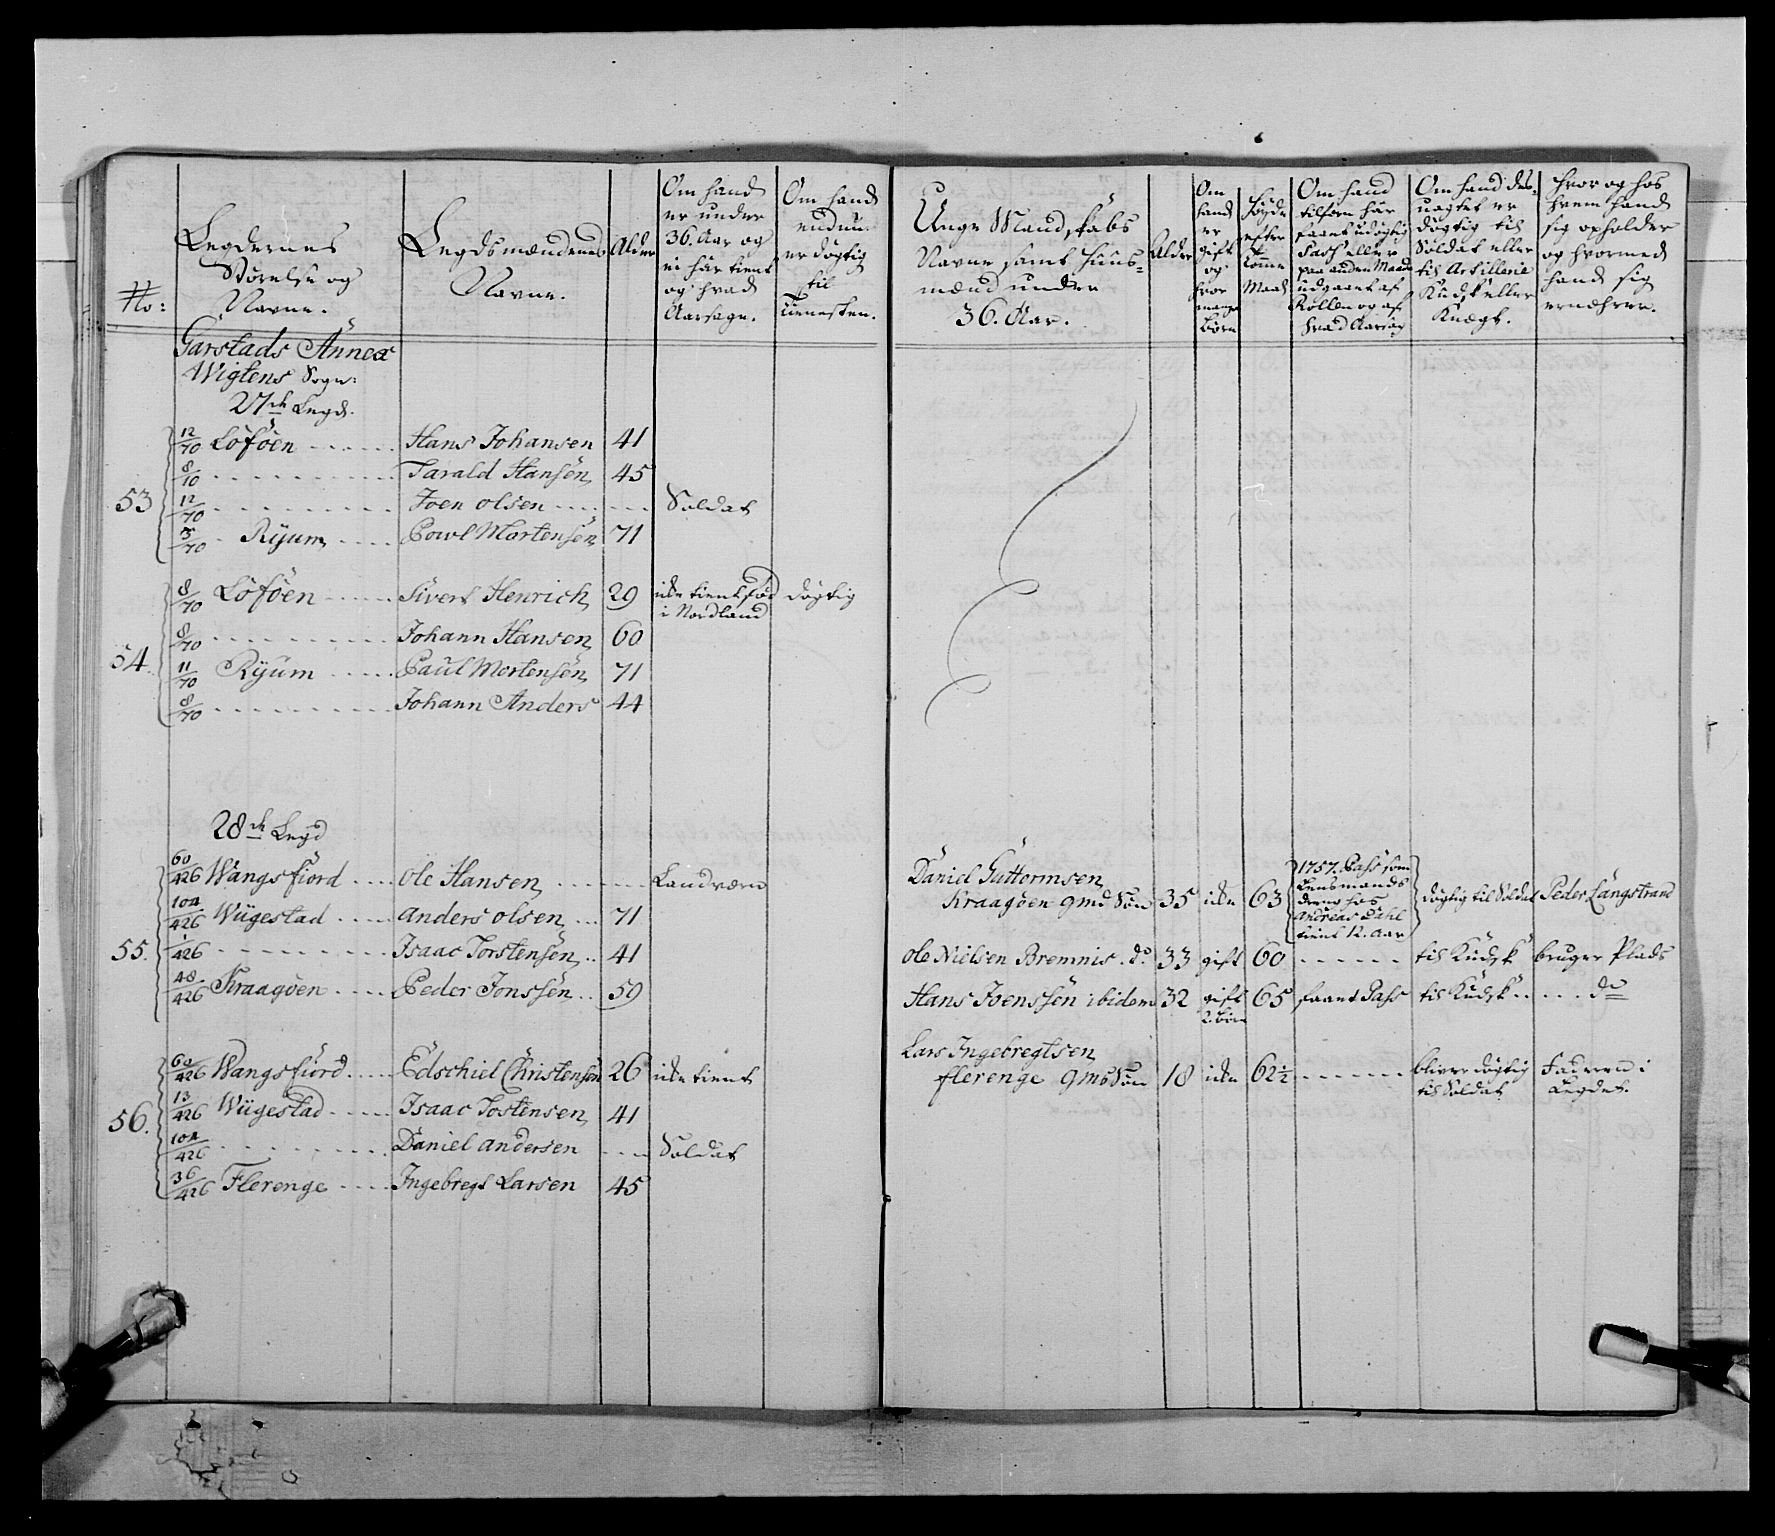 No:
Legdernes
Störelse og
Navne.
Legdsmændenes
Navne.
Alder
Om hand
er under
36. Aar og
ei har tient
og hvad
Aarsage.
Om hand
endnu
er dögtig
til
Tienesten.
Garstads Annex
Wigtens Sogn:
27de Legd.
53
12/70 Löföen ..... Hans Johansen 41
8/10 ..... Tarald Hansön 45
12/70 ..... Joen olsen ..... Soldat
3/70 Rÿum ..... Powl Mortensön 71
54.
8/70 Löföen ..... Sivert Henrich 29 ikke tient, föd dögtig
i Nordland
8/70 ..... Johann Hansen 60
11/70 Rÿum ..... Paul Mortensön 71
8/70 ..... Johann Anders 44
28de Legd
55.
60/426 Wangsfiord .... Ole Hansen ..... Landværn
104/426 Wügestad ..... Anders olsen ... 71
1/426 ..... Isaac Torstensön .. 41
48/426 Kraagöen ..... Peder Jonssön .. 59
56.
60/426 Wangsfiörd ..... Edschiel Christensön 26 ikke tient
13/426 Wügestad ..... Isaac Tostensen 41
104/426 ..... Daniel Andersen .... Soldat
36/426 Flerenge ..... Ingebregt Larsen 45
Unge Mandskabs
Navne samt Huus-
mænd under
36. Aar.
Alder
Om
hand
er
gift
og
hvor
mange
Börn
Höyde
efter
Tomme
Maal
Om hand
tilforn har
faaet udögtig
Pass eller
paa anden Maade
udgaaet af
Rollen og af
hvad Aarsag
Om hand des-
uagtet er
dögtig til
Soldat eller
til Artillerie
Kudsk eller
Knægt.
hvor og hos
hvem hand
sig opholder
og hvormed
hand sig
ernærer.
Daniel Guttormsen
Kraagöen gmd Sön 35 ikke 63
1757. Pass som
Lensmands
dreng hos
Andreas Dahl
tient 12. Aar
dögtig til Soldat Peder Langstrand
Ole Nielsen Bremnis. do 33 gift 60 ...... til Kudsk bruger Plads
Hans Joenssön ibidem 32 gift 65 faaet Pass til Kudsk ..... do
2 börn
Lars Ingebregtsen
flerenge gmd Sön 18 ikke 62½ ...... bliver dögtig Faderen i
til Soldat Legdet.